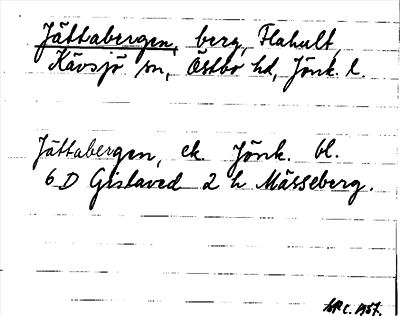 Jättabergen, berg, Flahult,
Kävsjö sn, Östbo hd, Jönk. l.
Jättabergen, ek. Jönk. bl.
6 D Gislaved 2 h Mässeberg.
c. 1957.